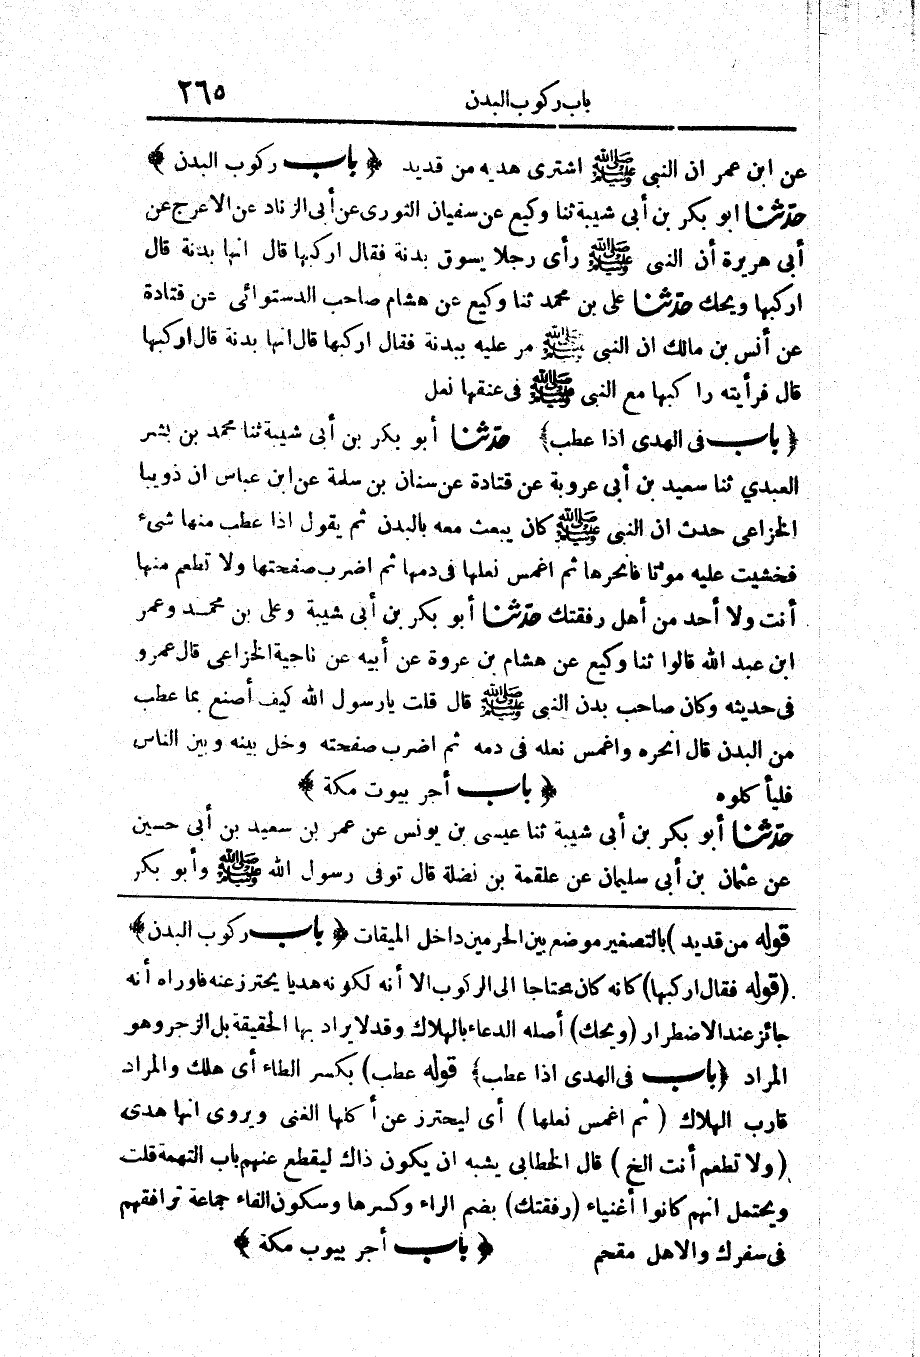 باب ركوب البدن ٢٦٥
عن ابن عمر ان النبي ﷺ اشترى هديه من قديد ﴿ باب ركوب البدن ﴾
حدثنا ابو بكر بن أبي شيبة ثنا وكيع عن سفيان الثورى عن أبى الزناد عن الاعرج عن
أبى هريرة أن النبى ﷺ رأى رجلا يسوق بدنة فقال اركبها قال انها بدنة قال
اركبها ويحك حدثنا على بن محمد ثنا وكيع عن هشام صاحب الدستوائى عن قتادة
عن أنس بن مالك ان النبى ﷺ مر عليه ببدنة فقال اركبها قال انها بدنة قال اركبها
قال فرأيته را كبها مع النبى ﷺ فى عنقها نعل
﴿ باب فى الهدى اذا عطب﴾ حدثنا أبو بكر بن أبى شيبة ثنا محمد بن بشر
العبدي ثنا سعيد بن أبى عروبة عن قتادة عن سنان بن سلمة عن ابن عباس ان ذويبا
الخزاعى حدث ان النبى ﷺ كان يبعث معه بالبدن ثم يقول اذا عطب منها شىء
فخشيت عليه موتا فانحرها ثم اغمس نعلها فى دمها ثم اضرب صفحتها ولا تطعم منها
أنت ولا أحد من أهل رفقتك حدثنا أبو بكر بن أبى شيبة وعلى بن محمد وعمر
ابن عبد الله قالوا ثنا وكيع عن هشام بن عروة عن أبيه عن ناجية الخزاعى قال عمرو
فى حديثه وكان صاحب بدن النبى ﷺ قال قلت يارسول الله كيف أصنع بما عطب
من البدن قال انحره واغمس نعله فى دمه ثم اضرب صفحته وخل بينه وبين الناس
فليأ كلوه ﴿ باب أجر بيوت مكة ﴾
حدثنا أبو بكر بن أبى شيبة ثنا عيسى بن يونس عن عمر بن سعيد بن أبى حسين
عن عثمان بن أبى سليمان عن علقمة بن نضلة قال توفى رسول الله ﷺ وأبو بكر
قوله من قديد ) بالتصغير موضع بين الحرمين داخل الميقات ﴿ باب ركوب البدن﴾
(قوله فقال اركبها) كانه كان محتاجا الى الركوب الا أنه لكونه هديا يحترز عنه فاوراه أنه
جائز عند الاضطرار (ويحك) أصله الدعاء بالهلاك وقد لايراد بها الحقيقة بل الزجر وهو
المراد ﴿باب فى الهدى اذا عطب﴾ قوله عطب) بكسر الطاء أى هلك والمراد
قارب الهلاك ( ثم اغمس نعلها ) أى ليحترز عن أ كلها الغنى ويروى انها هدى
(ولا تطعم أنت الخ ) قال الخطابى يشبه ان يكون ذاك ليقطع عنهم باب التهمة قلت
ويحتمل انهم كانوا أغنياء (رفقتك) بضم الراء وكسرها وسكون الفاء جماعة ترافقهم
فى سفرك والاهل مقحم ﴿ باب أجر بيوب مكة ﴾